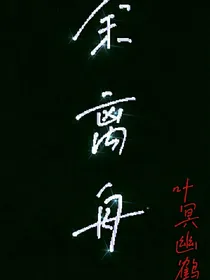 余离舟
叶冥幽鹤